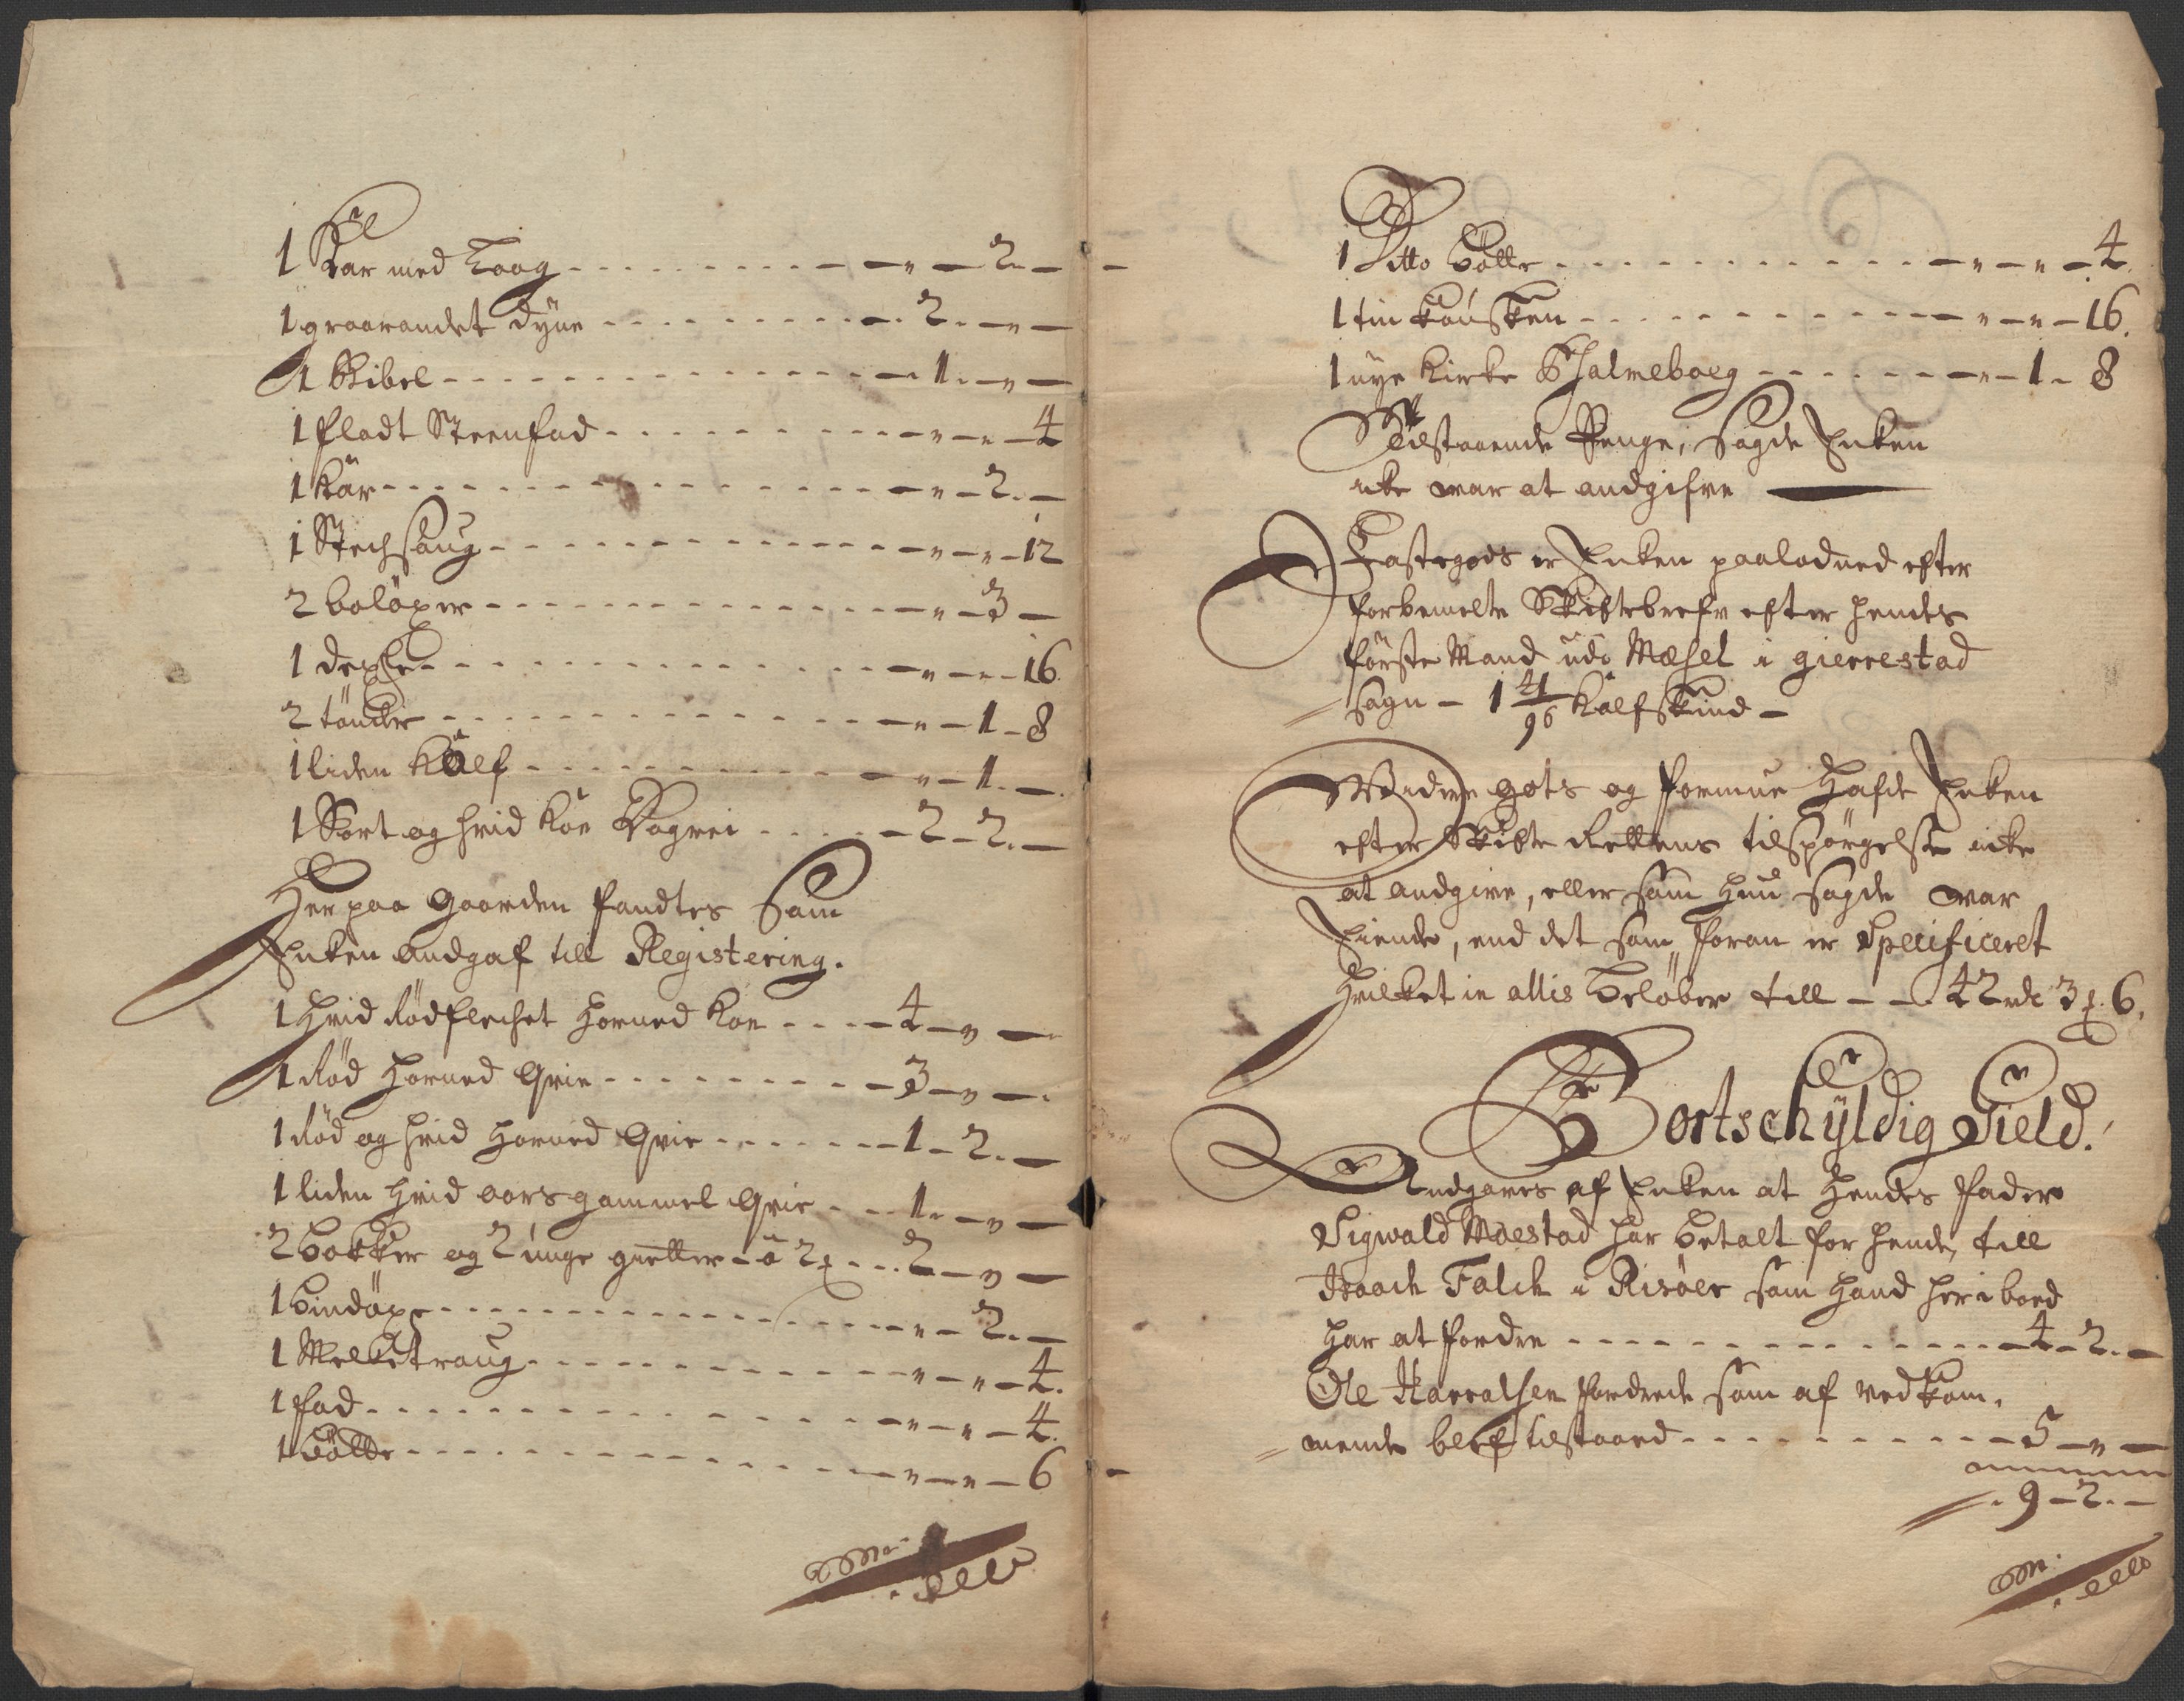 1 Kar med Laag - - - " - 2 -
1 graarandet dyne - - - 2 - " -
1 Bibel - - - 1 - " -
1 fladt Steenfad - - - " - " - 4
1 Kar - - - " - 2 -
1 Stechsaug - - - " - " - 12
2 boløxer - - - " - 3 -
1 dexle - - - " - " - 16
2 tønder - - - " - 1 - 8
1 liden Kalf - - - " - 1 -
1 Sort og hvid Koe Dagrei - - - 2 - 2 -
Her paa Gaarden fandtes Som
Enken andgaf till Registering.
1 Hvid Rødflechet horned Koe - - - 4 - " -
1 Rød horned Qvie - - - 3 - " -
1 Rød og hvid horned Qvie - - - 1 - 2 -
1 liden hvid aarsgammel Qvie - - - 1 - " -
2 Bokker og 2 unge gietter - a 2 - - - 2 - " -
1 Bindøxe - - - " - 2 -
1 Melketraug - - - " - " - 4
1 fad - - - " - " - 4
1 Bøtte - - - " - " - 6
1 Ditto Bøtte - - - " - " - 4
1 tin Kousken - - - " - " - 16
1 nye Kirke Psalmeboeg - - - " - 1 - 8
Tilstaaende Penge, sagde Enken
icke var at andgifve
Fastegods er Enken paalodned efter
forbemelte Skiftebrefv efter hendes
første Mand udi Mæsel i gierrestad
Sogn - 1 41/96 Kalfskind -
Widere gots og formue hafde Enken
efter Skifte Rettens tilspørgelse icke
at andgive, eller som hun sagde var
Eiende, end det som foran er Specificeret
Hvilket in allis Beløber till - - 42 rdr 3 6.
Bortschyldig Gield.
Andgaves af Enken at hendes Fader
Sigwald Moestad har betalt for hende, till
Isaach Falch i Risøer som hand her i boed
har at fordre - - - 4 - 2 -
Ole Haraalsen fordrede som af vedkom-
mende blef tilstaaed - - - 5 - " -
9 - 2 -